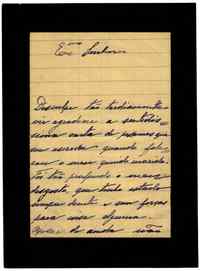 Exmo Senhor
Desculpe tão tardiamente
vir agradecer a sentidis
sima carta de pezames que
me escreveu quando fale
ceu o meu querido marido.
Foi tão profundo o meu
desgosto, que tenho estado
sempre doente e sem forças
para cousa alguma.
de ainda não